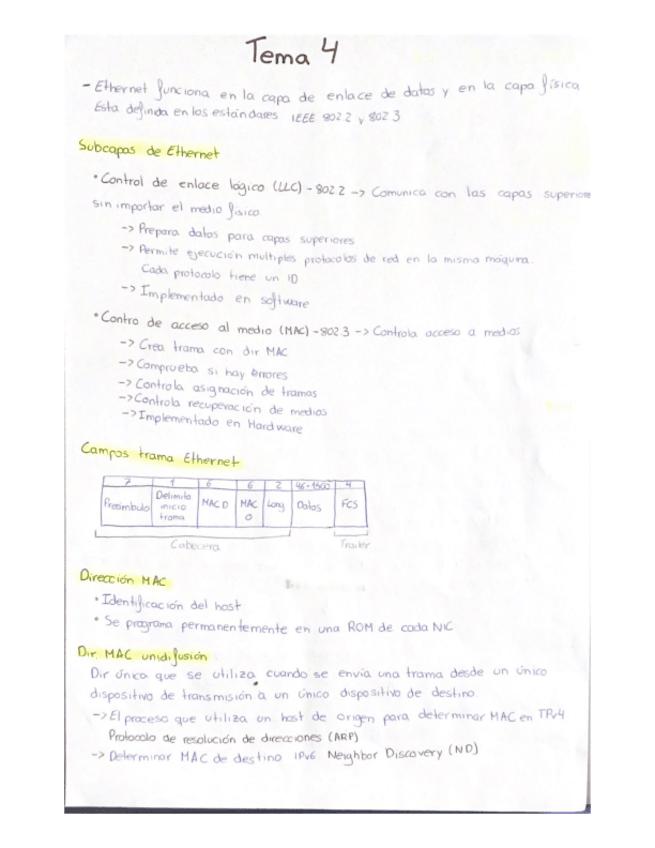 Tema 4
- Ethernet funciona en la capa de enlace de datos y en la capa física
Esta definida en los estándares IEEE 802 2 y 802 3
Subcapas de Ethernet
• Control de enlace lógico (LLC) - 802 2 -> Comunica con las capas superiore
sin importar el medio físico
-> Prepara datos para capas superiores
-> Permite ejecución multiples protocolos de red en la misma máquina.
Cada protocolo tiene un ID
-> Implementado en software
• Contro de acceso al medio (MAC) - 802 3 -> Controla acceso a medios
-> Crea trama con dir MAC
-> Comprueba si hay errores
-> Controla asignación de tramas
-> Controla recuperación de medios
-> Implementado en Hardware
Campos trama Ethernet
7 1 6 6 2 46-1500 4
Preambulo Delimita inicio trama MAC D MAC O Long Datos FCS
Cabecera Trailer
Dirección MAC
• Identificación del host
• Se programa permanentemente en una ROM de cada NIC
Dir. MAC unidifusión
Dir única que se utiliza cuando se envia una trama desde un único
dispositivo de transmisión a un único dispositivo de destino
-> El proceso que utiliza un host de origen para determinar MAC en IPv4
Protocolo de resolución de direcciones (ARP)
-> Determinar MAC de destino IPv6 Neighbor Discovery (ND)